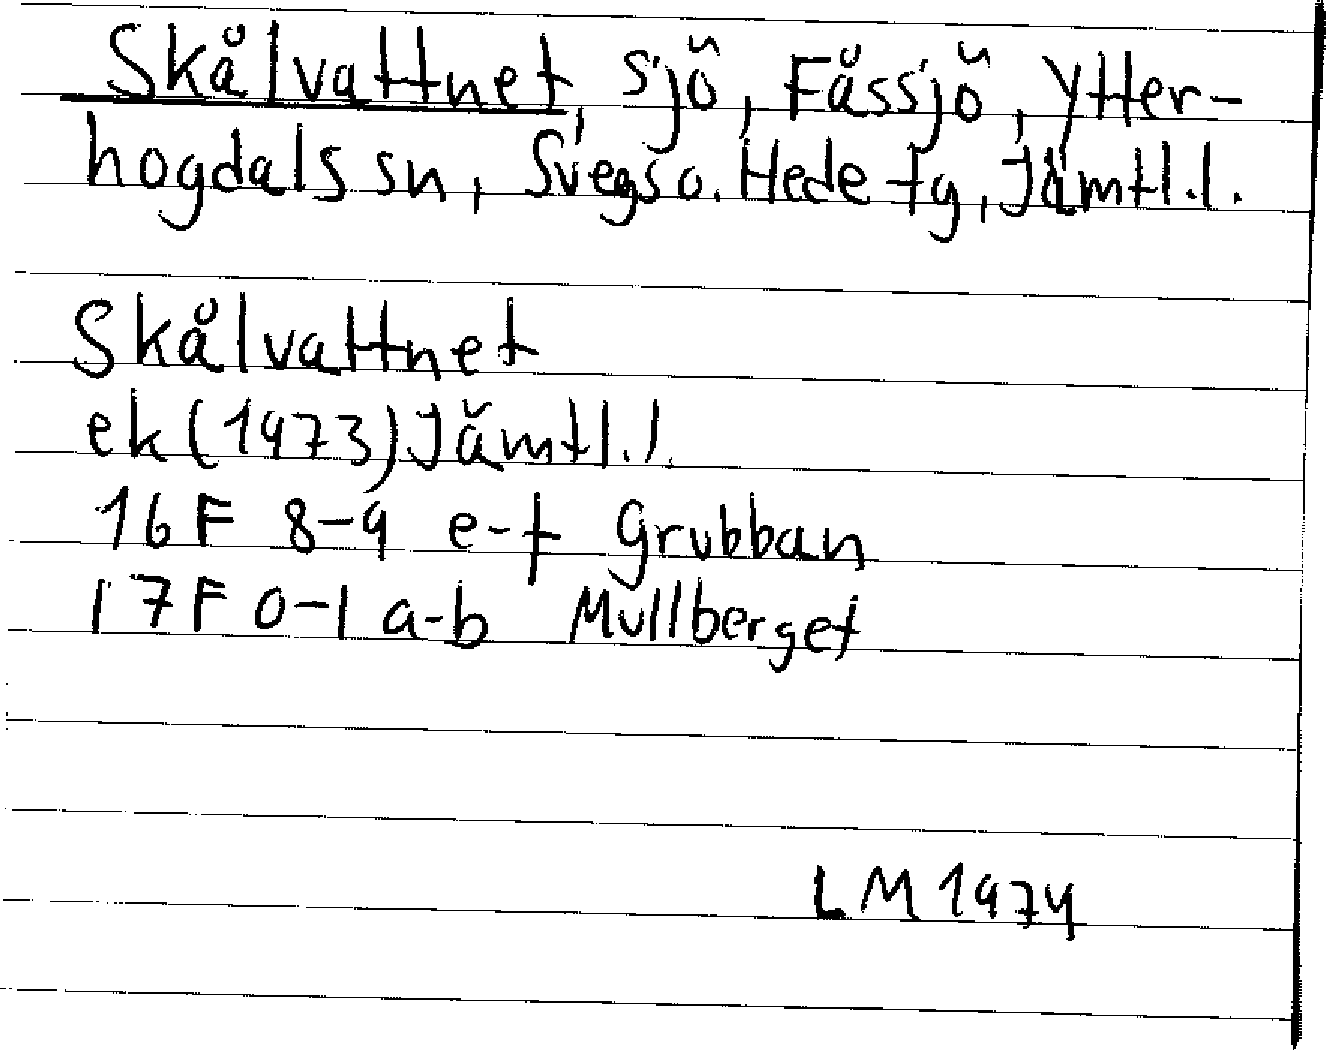 Skålvattnet, sjö, Fåssjö, Ytter-
hogdals sn, Svegs o. Hede tg, Jämtl.l.
Skålvattnet
ek (1973) Jämtl.l.
16F 8-9 e-f Grubban
17F 0-1 a-b Mullberget
LM 1974